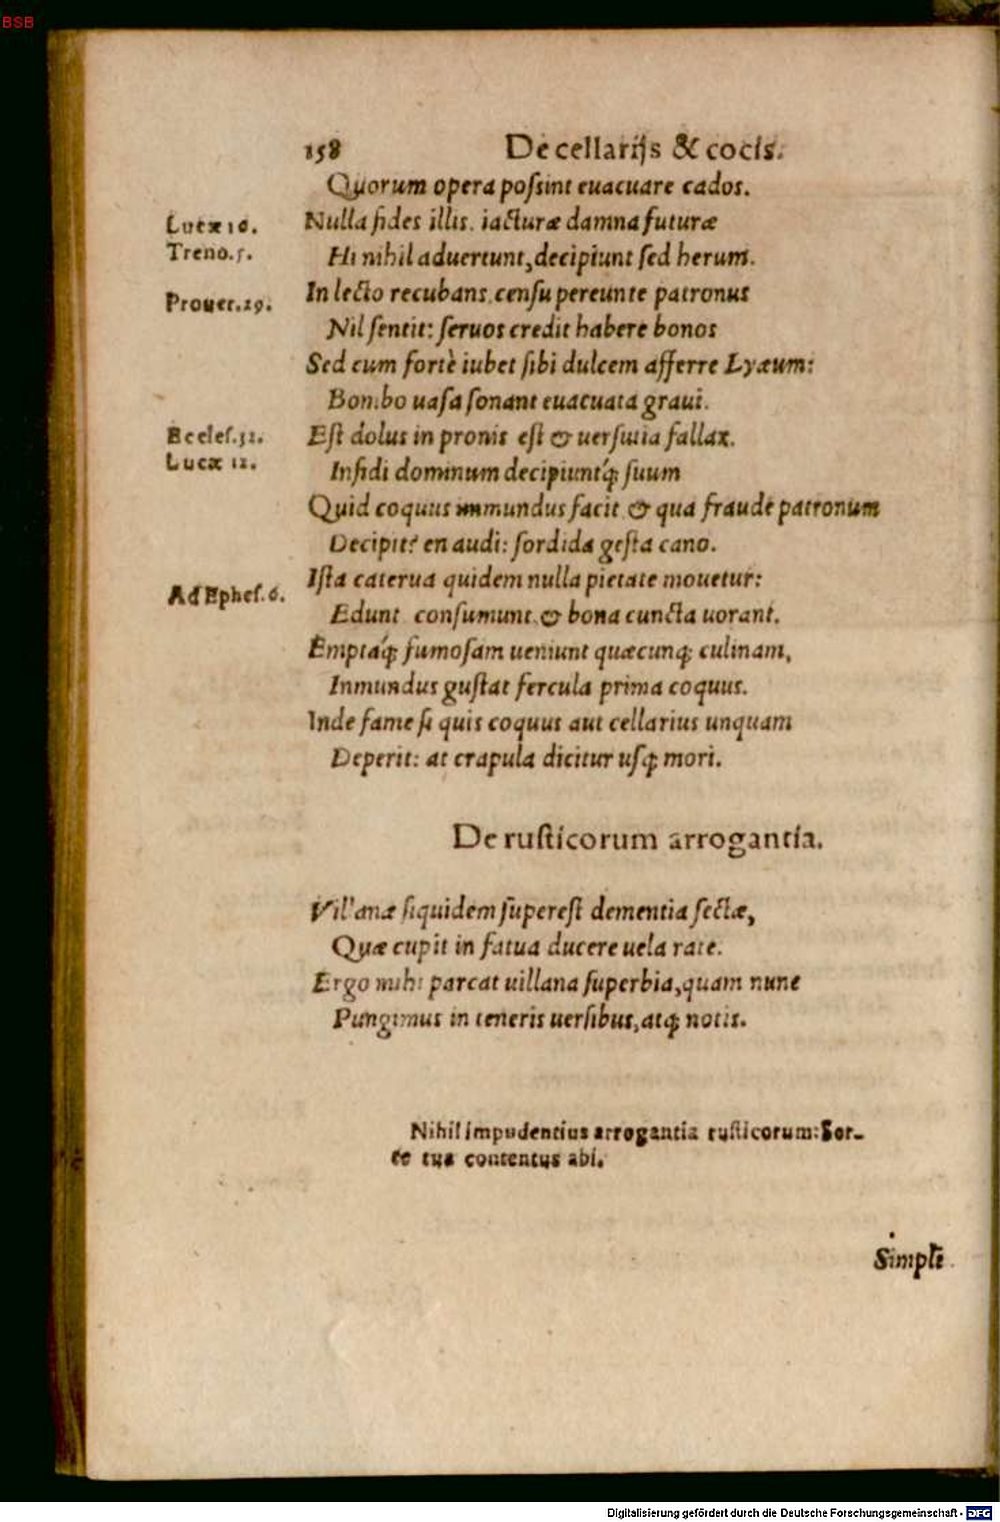 BSB
158 De cellarijs & cocis.
Quorum opera possint euacuare cados.
Lucæ 16. Nulla fides illis, iacturæ damna futuræ
Treno. 5. Hi nihil aduertunt, decipiunt sed herum.
Prouer. 29. In lecto recubans, censu pereunte patronus
Nil sentit: seruos credit habere bonos
Sed cum fortè iubet sibi dulcem afferre Lyæum:
Bombo uasa sonant euacuata graui.
Eccles. 32. Est dolus in pronis est & uersutia fallax.
Lucæ 12. Infidi dominum decipiuntq́; suum
Quid coquus inmundus facit & qua fraude patronum
Decipit? en audi: sordida gesta cano.
Ad Ephes. 6. Ista caterua quidem nulla pietate mouetur:
Edunt consumunt & bona cuncta uorant.
Emptaq́; fumosam ueniunt quæcunq; culinam,
Inmundus gustat fercula prima coquus.
Inde fame si quis coquus aut cellarius unquam
Deperit: at crapula dicitur usq; mori.
De rusticorum arrogantia.
Villanæ siquidem superest dementia sectæ,
Quæ cupit in fatua ducere uela rate.
Ergo mihi parcat uillana superbia, quam nunc
Pungimus in teneris uersibus, atq; notis.
Nihil impudentius arrogantia rusticorum: Sor-
te tua contentus abi.
Simpli
Digitalisierung gefördert durch die Deutsche Forschungsgemeinschaft - DFG